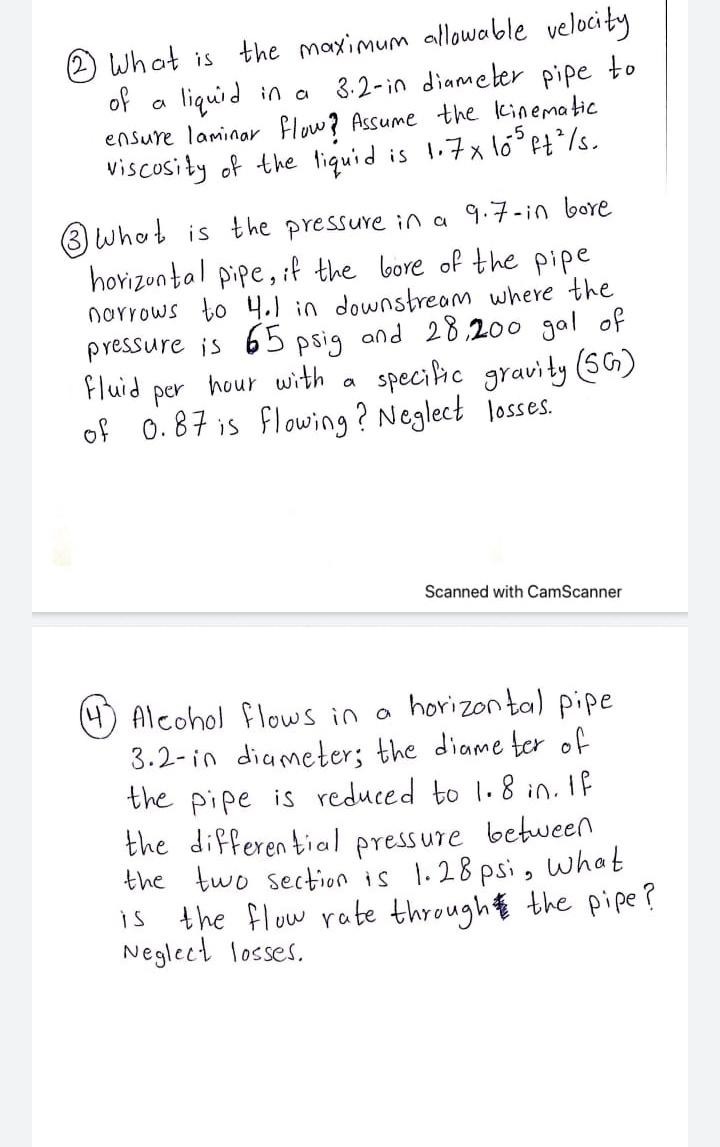 ② What is the maximum allowable velocity
of a liquid in a 3.2-in diameter pipe to
ensure laminar flow? Assume the kinematic
viscosity of the liquid is 1.7 x 10⁻⁵ ft²/s.
③ What is the pressure in a 9.7-in bore
horizontal pipe, if the bore of the pipe
narrows to 4.1 in downstream where the
pressure is 65 psig and 28,200 gal of
fluid per hour with a specific gravity (SG)
of 0.87 is flowing? Neglect losses.
Scanned with CamScanner
④ Alcohol flows in a horizontal pipe
3.2-in diameter; the diameter of
the pipe is reduced to 1.8 in. If
the differential pressure between
the two section is 1.28 psi, what
is the flow rate through the pipe?
Neglect losses.